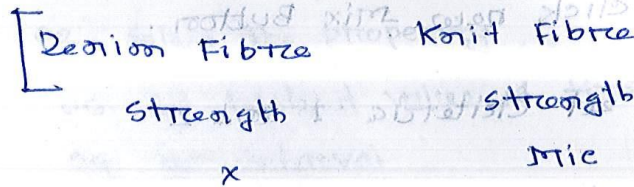 Denim Fibre Knit Fibre
Strength Strength
x Mic